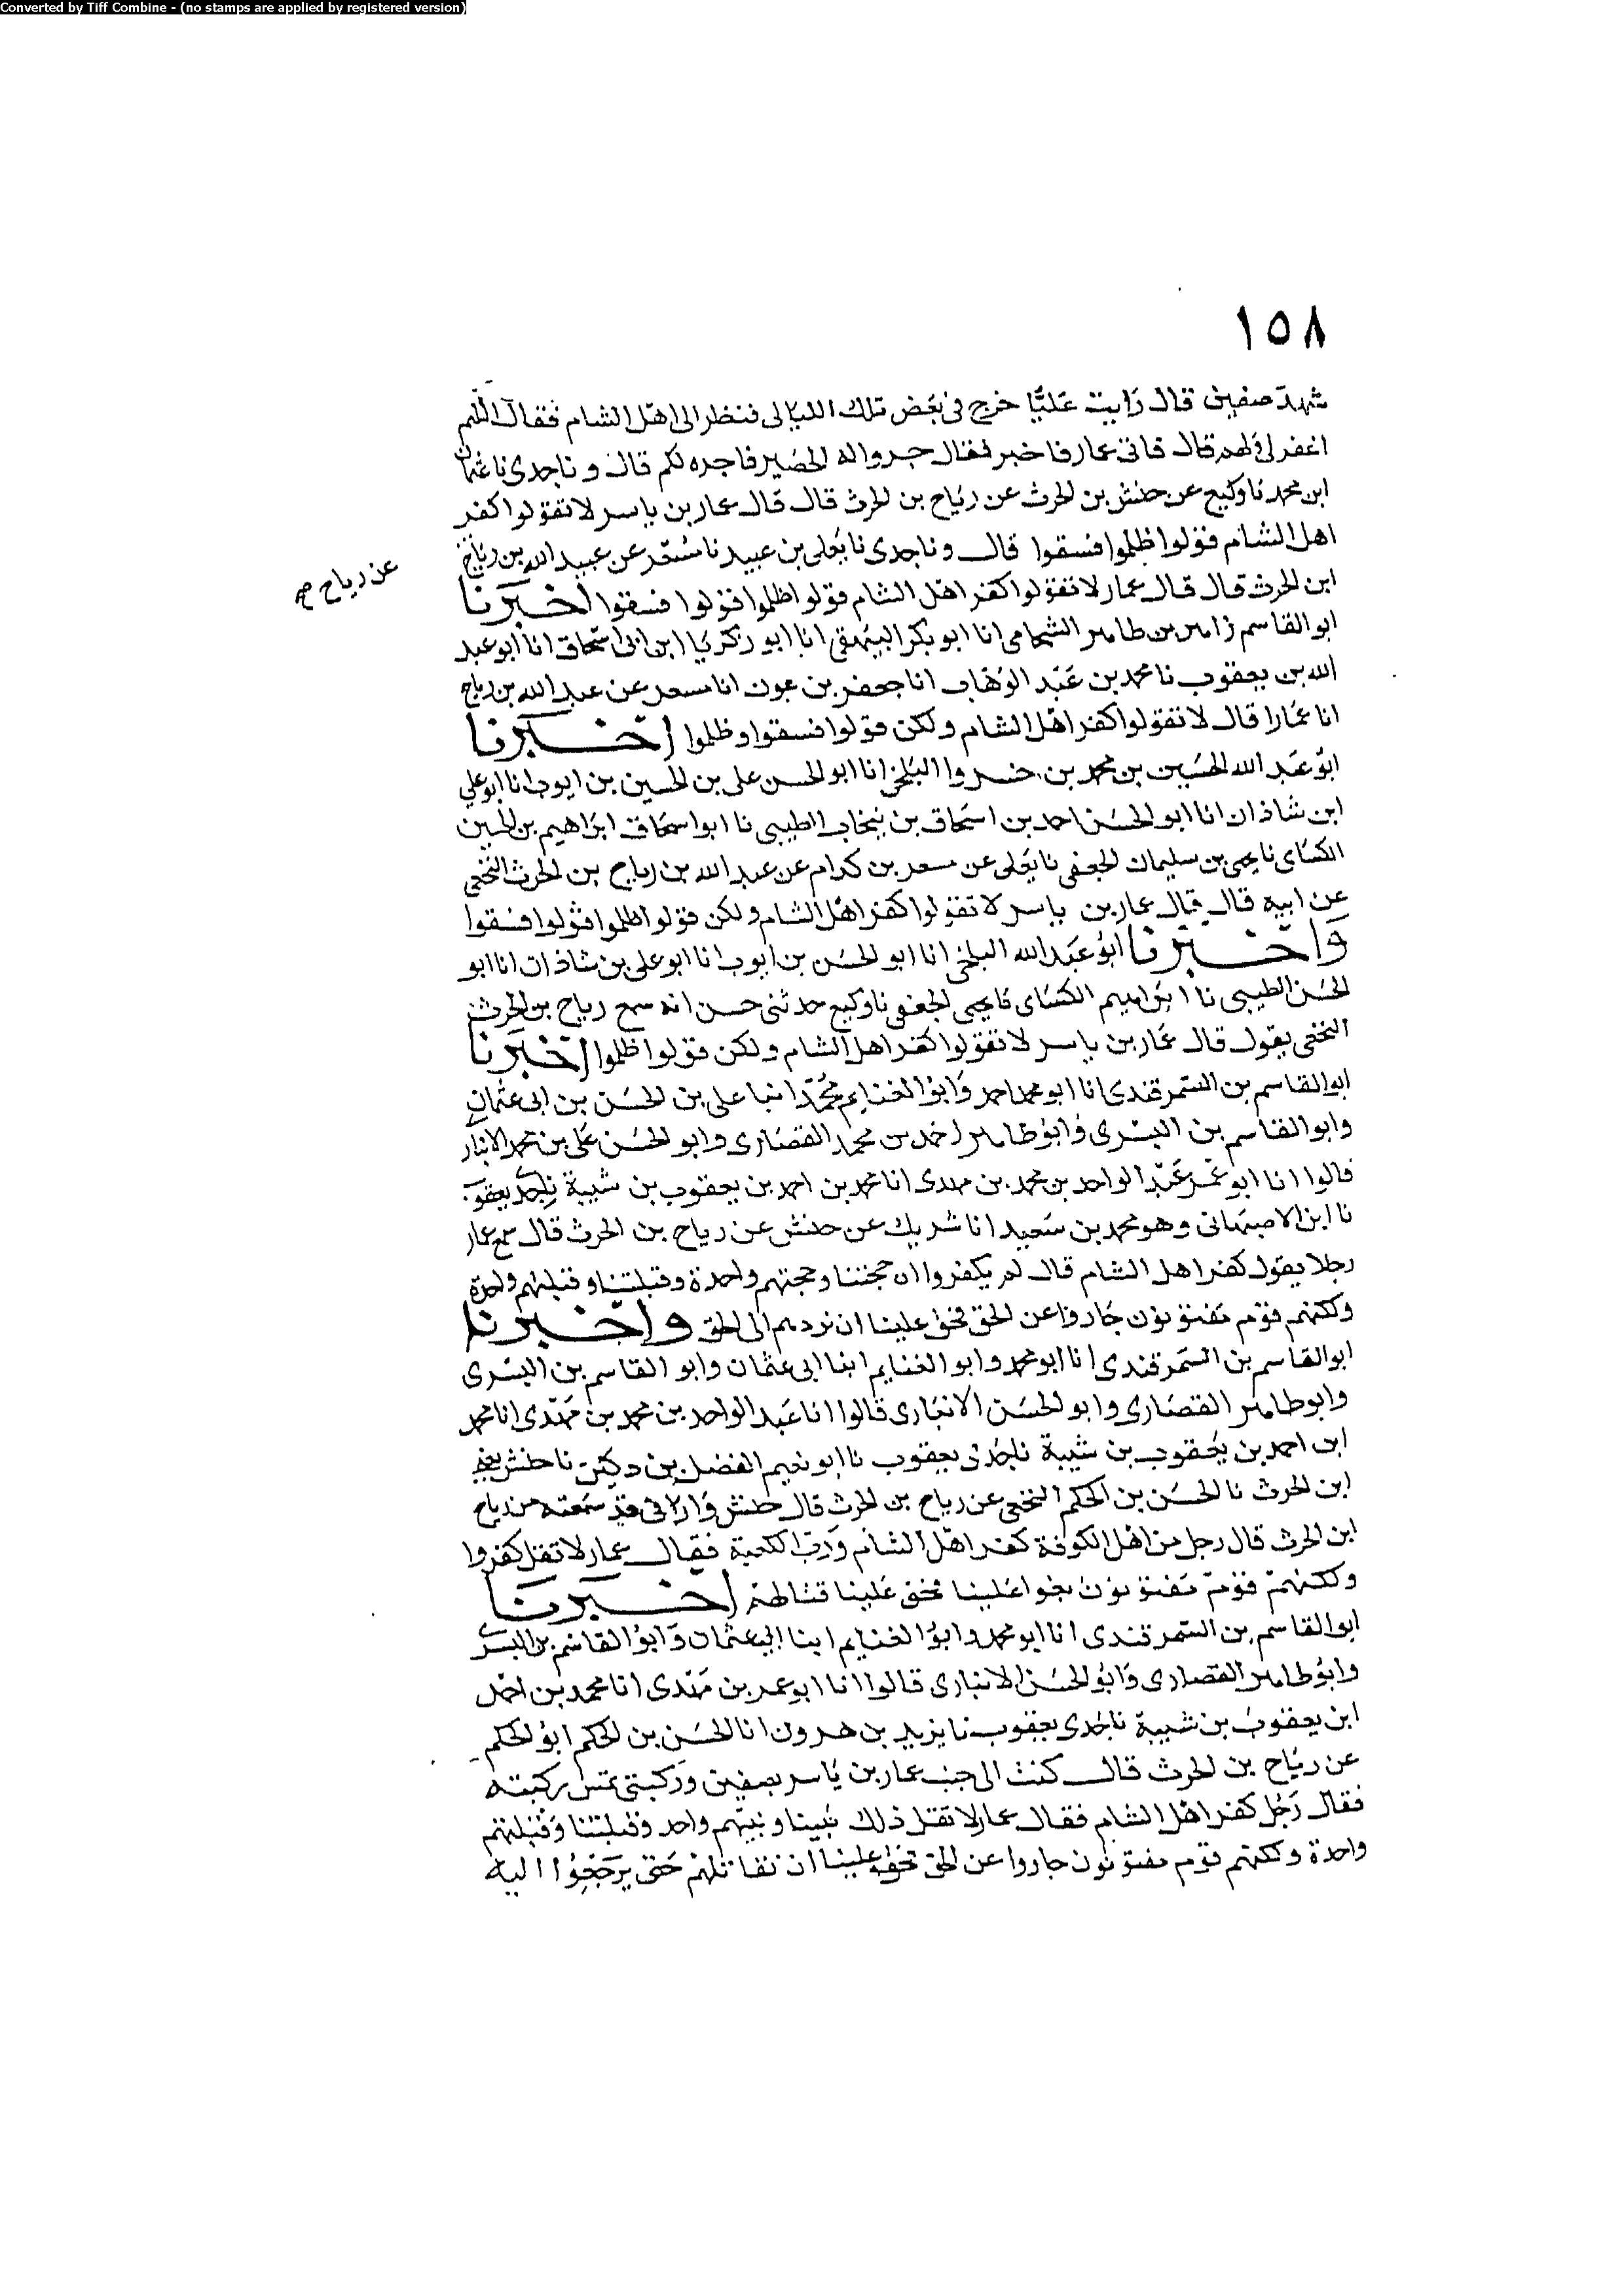 Converted by Tiff Combine - (no stamps are applied by registered version)
١٥٨
شهد صفين قال رايت عليا خرج فى بعض تلك الليالى فنظر الى اهل الشام فقال اللهم
اغفر لى ولهم قال فاتى عمار فاخبر فقال جروا له الحصير فاجره لكم قال و نا جدى نا عثمان
ابن محمد نا وكيع عن حنش بن الحرث عن رياح بن الحرث قال قال عمار بن ياسر لا تقولوا كفر
اهل الشام قولوا ظلموا فسقوا قال و نا جدى نا يعلى بن عبيد نا مسعر عن عبيد الله بن رياح
عن رياح صح
ابن الحرث قال قال عمار لا تقولوا كفر اهل الشام قولوا ظلموا قولوا فسقوا اخبرنا
ابو القاسم زاهر بن طاهر الشحامى انا ابو بكر البيهقى انا ابو زكريا ابن ابى اسحاق انا ابو عبد
الله بن يعقوب نا محمد بن عبد الوهاب انا جعفر بن عون انا مسعر عن عبد الله بن رياح
ان عمارا قال لا تقولوا كفر اهل الشام ولكن قولوا فسقوا وظلموا اخبرنا
ابو عبد الله الحسين بن محمد بن خسروا البلخى انا ابو الحسن على بن الحسين بن ايوب انا ابو على
ابن شاذان انا ابو الحسن احمد بن اسحاق بن نيخاب الطيبى نا ابو اسحاق ابراهيم بن الحسين
الكساى نا يحيى بن سليمان الجعفى نا يعلى عن مسعر بن كدام عن عبد الله بن رياح بن الحرث النخعى
عن ابيه قال قال عمار بن ياسر لا تقولوا كفر اهل الشام ولكن قولوا ظلموا قولوا فسقوا
واخبرنا ابو عبد الله البلخى انا ابو الحسن بن ايوب انا ابو على بن شاذان انا ابو
الحسن الطيبى نا ابراهيم الكساى نا يحيى الجعفى نا وكيع حدثنى حسن انه سمع رياح بن الحرث
النخعى يقول قال عمار بن ياسر لا تقولوا كفر اهل الشام ولكن قولوا ظلموا اخبرنا
ابو القاسم بن السمرقندى انا ابو محمد احمد وابو الغنايم محمد ابنا على بن الحسن بن ابى عثمان
وابو القاسم بن البسرى وابو طاهر احمد بن محمد القصارى وابو الحسن على بن محمد الانبار
قالوا انا ابو عمر عبد الواحد بن محمد بن مهدى انا محمد بن احمد بن يعقوب بن شيبة نا جدى يعقوب
نا ابن الاصبهانى وهو محمد بن سعيد انا شريك عن حنش عن رياح بن الحرث قال سمع عمار
رجلا يقول كفر اهل الشام قال لم يكفروا ان حجتنا وحجتهم واحدة وقبلتنا وقبلتهم واحدة
ولكنهم قوم مفتونون جاروا عن الحق فحق علينا ان نردهم الى الحق واخبرنا
ابو القاسم بن السمرقندى انا ابو محمد وابو الغنايم ابنا ابى عثمان وابو القاسم بن البسرى
وابو طاهر القصارى وابو الحسن الانبارى قالوا انا عبد الواحد بن محمد بن مهدى انا محمد
ابن احمد بن يعقوب بن شيبة نا جدى يعقوب نا ابو نعيم الفضل بن دكين نا حنش يعنى
ابن الحرث نا الحسن بن الحكم النخعى عن رياح بن الحرث قال حنش وارانى قد سمعته من رياح
ابن الحرث قال رجل من اهل الكوفة كفر اهل الشام ورب الكعبة فقال عمار لا تقل كفروا
ولكنهم قوم مفتونون بغوا علينا فحق علينا قتالهم اخبرنا
ابو القاسم بن السمرقندى انا ابو محمد وابو الغنايم ابنا ابى عثمان وابو القاسم بن البسرى
وابو طاهر القصارى وابو الحسن الانبارى قالوا انا ابو عمر بن مهدى انا محمد بن احمد
ابن يعقوب بن شيبة نا جدى يعقوب نا يزيد بن هرون انا الحسن بن الحكم ابو الحكم
عن رياح بن الحرث قال كنت الى جنب عمار بن ياسر بصفين وركبتى تمس ركبته
فقال رجل كفر اهل الشام فقال عمار لا تقل ذلك نبينا ونبيهم واحد وقبلتنا وقبلتهم
واحدة ولكنهم قوم مفتونون جاروا عن الحق فحق علينا ان نقاتلهم حتى يرجعوا اليه